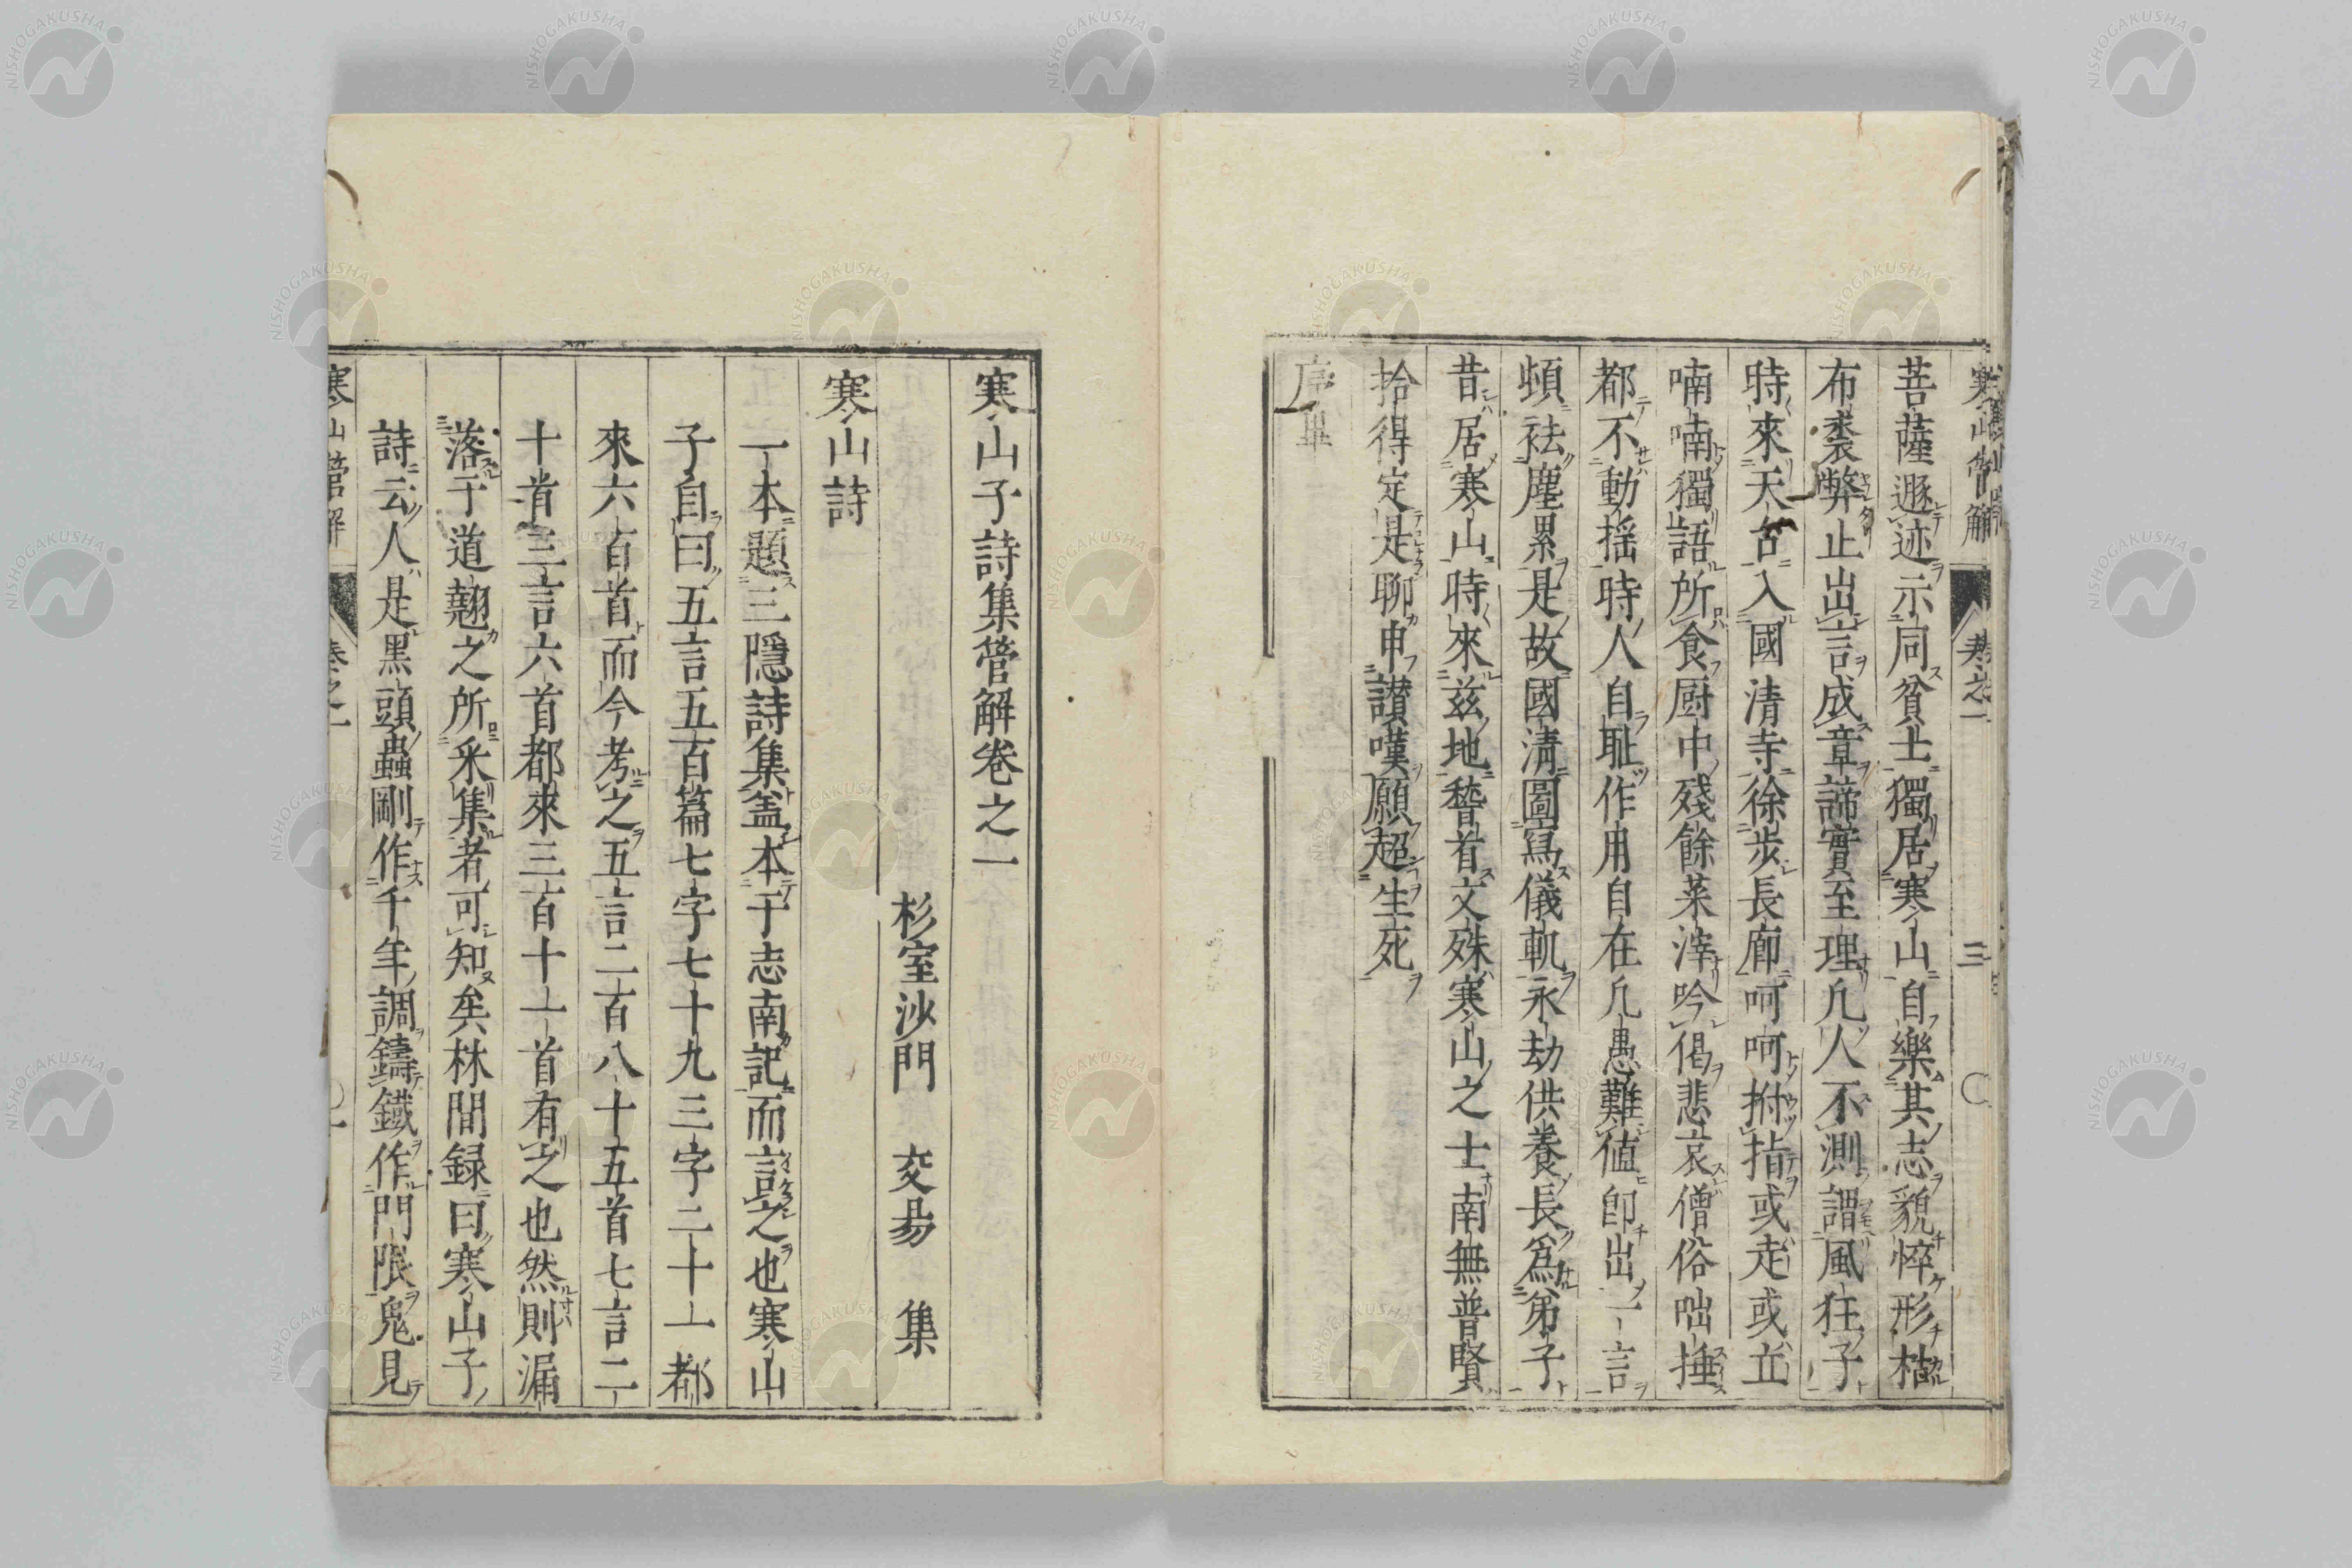 菩薩遯迹示同貧士獨居寒山自樂其志貌悴形枯
布裘弊止出言成章諦實至理凡人不測謂風狂子
時來天台入國清寺徐步長廊呵呵拊指或走或立
喃喃獨語所食厨中殘餘菜滓吟偈悲哀僧俗咄捶
都不動搖時人自耻作用自在凡愚難値卽出一言
頓袪塵累是故國淸圖寫儀軌永劫供養長爲弟子
昔居寒山時來茲地稽首文殊寒山之士南無普賢
拾得定是聊申讃嘆願超生死
序畢
寒山子詩集管解卷之一
杉室沙門 交易 集
寒山詩
一本題三隱詩集盖本于志南記而言之也寒山
子自曰五言五百篇七字七十九三字二十一都
來六百首而今考之五言二百八十五首七言二
十首三言六首都來三百十一首有之也然則漏
落于道翹之所采集者可知矣林間録曰寒山子
詩云人是黑頭蟲剛作千年調鑄鐵作門限鬼見
寒山管解 卷之一